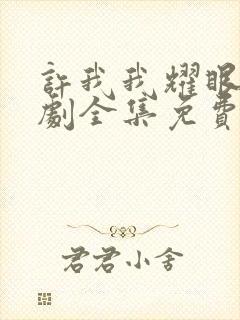 許我我耀眼
劇全集免費
君君小舍